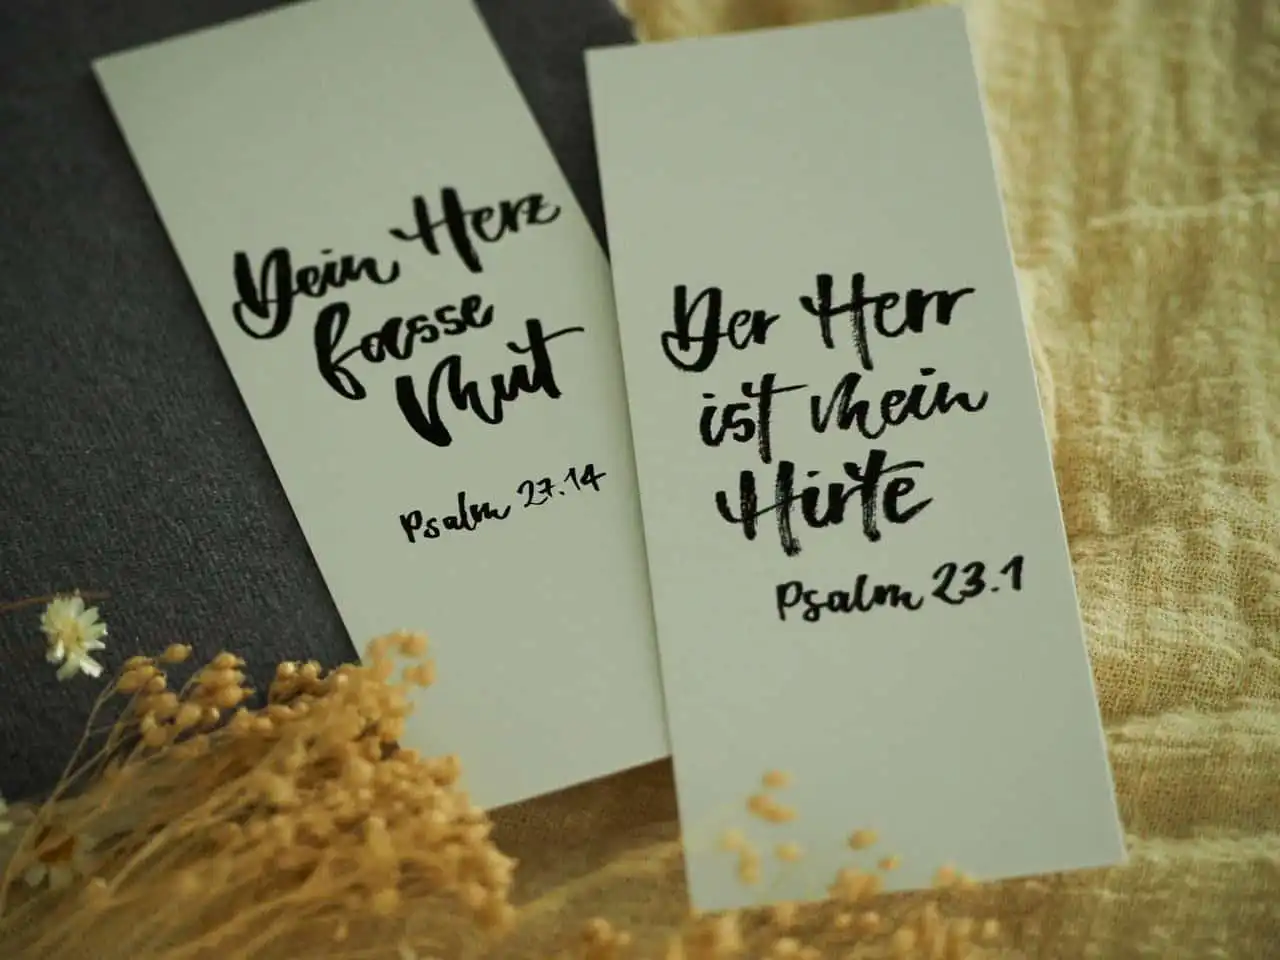 Dein Herz
fasse
Mut
Psalm 27.14
Der Herr
ist mein
Hirte
Psalm 23.1